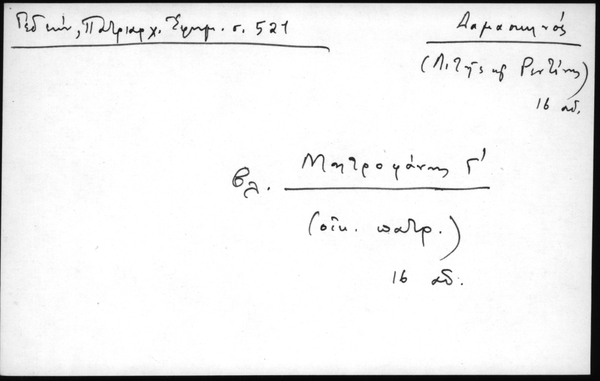 Γεδεών, Πατριαρχ. Έφημ. σ. 521
Δαμασκηνός
(Λιτῆς κ Ρεντίνης)
16 αἰ.
βλ. Μητροφάνης Γ'
(οἰκ. πατρ.)
16 αἰ.